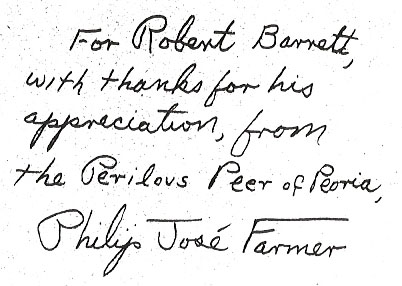 For Robert Barrett,
with thanks for his
appreciation, from
the Perilous Peer of Peoria,
Philip José Farmer